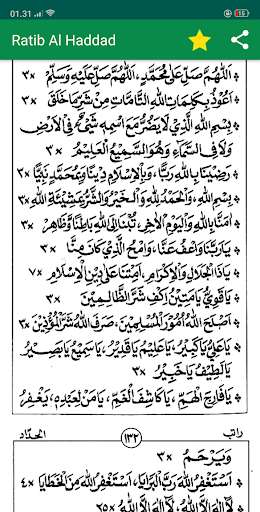 01.31
15
Ratib Al Haddad
اَللّٰهُمَّ صَلِّ عَلَى مُحَمَّدٍ، اَللّٰهُمَّ صَلِّ عَلَيْهِ وَسَلِّمْ ٣x
اَعُوْذُ بِكَلِمَاتِ اللهِ التَّامَّاتِ مِنْ شَرِّ مَا خَلَقَ ٣x
بِسْمِ اللهِ الَّذِيْ لَا يَضُرُّ مَعَ اسْمِهِ شَيْءٌ فِي الْاَرْضِ
وَلَا فِي السَّمَآءِ وَهُوَ السَّمِيْعُ الْعَلِيْمُ ٣x
رَضِيْنَا بِاللهِ رَبًّا، وَبِالْاِسْلَامِ دِيْنًا وَبِمُحَمَّدٍ نَبِيًّا ٣x
بِسْمِ اللهِ، وَالْحَمْدُ لِلّٰهِ وَالْخَيْرُ وَالشَّرُّ بِمَشِيْئَةِ اللهِ ٣x
اٰمَنَّا بِاللهِ وَالْيَوْمِ الْاٰخِرِ، تُبْنَا اِلَى اللهِ بَاطِنًا وَظَاهِرْ ٣x
يَارَبَّنَا وَاعْفُ عَنَّا، وَامْحُ الَّذِيْ كَانَ مِنَّا ٣x
يَاذَا الْجَلَالِ وَالْاِكْرَامِ، اَمِتْنَا عَلَى دِيْنِ الْاِسْلَامِ ٧x
يَاقَوِيُّ يَامَتِيْنُ اِكْفِ شَرَّ الظَّالِمِيْنَ ٣x
اَصْلَحَ اللهُ اُمُوْرَ الْمُسْلِمِيْنَ، صَرَفَ اللهُ شَرَّ الْمُؤْذِيْنَ ٣x
يَاعَلِيُّ يَاكَبِيْرُ، يَاعَلِيْمُ يَاقَدِيْرُ، يَاسَمِيْعُ يَابَصِيْرُ
يَالَطِيْفُ يَاخَبِيْرُ ٣x
يَافَارِجَ الْهَمِّ، يَاكَاشِفَ الْغَمِّ، يَامَنْ لِعَبْدِهِ يَغْفِرُ
راتب ١٣٢ الحدّاد
وَيَرْحَمُ ٣x
اَسْتَغْفِرُ اللهَ رَبَّ الْبَرَايَا، اَسْتَغْفِرُ اللهَ مِنَ الْخَطَايَا ٤x
لَآ اِلٰهَ اِلَّا اللهُ، لَآ اِلٰهَ اِلَّا اللهُ ٢٥x